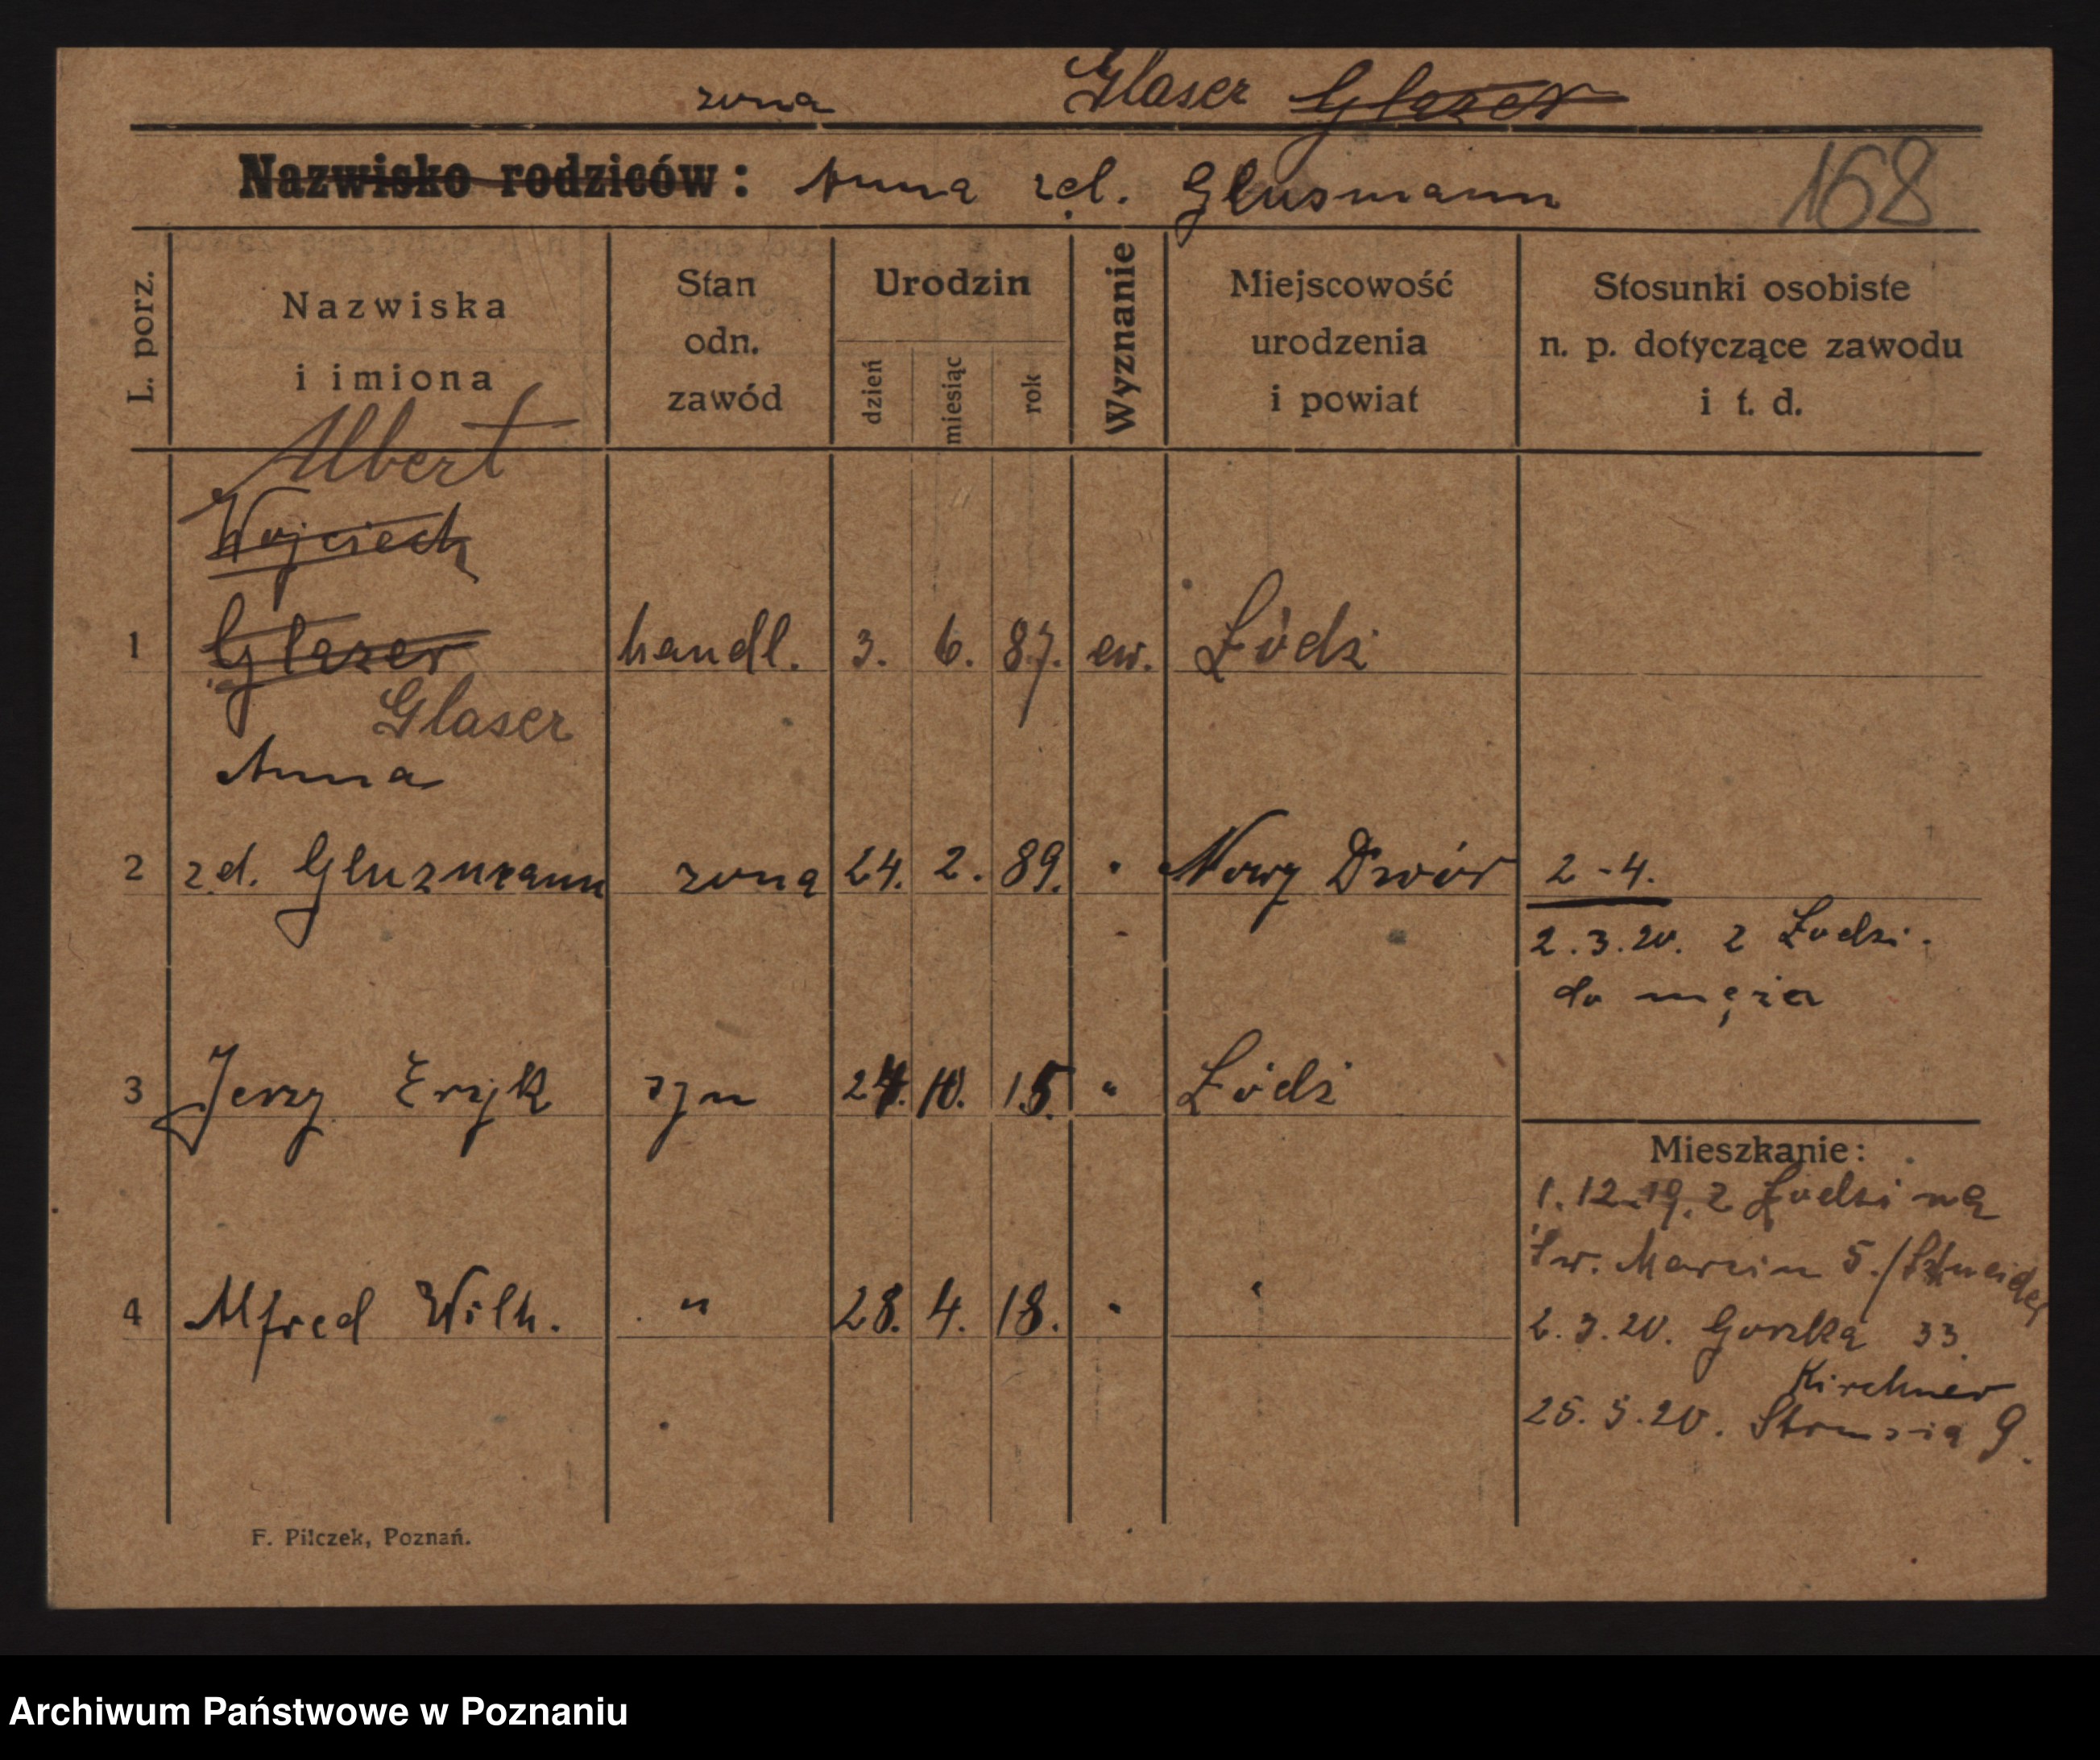 żona Glaser Glazer
Nazwisko rodziców: Anna zd. Glusmann
168
L. porz.
Nazwiska
i imiona
Stan
odn.
zawód
Urodzin
dzień
miesiąc
rok
Wyznanie
Miejscowość
urodzenia
i powiat
Stosunki osobiste
n. p. dotyczące zawodu
i t. d.
Albert
Wojciech
1 Glazer handl. 3. 6. 87. ew. Łódź
Glaser
Anna
2 z.d. Gluzmann żona 24. 2. 89. " Nowy Dwór 2-4.
2.3.20. z Łodzi.
do męża
3 Jerzy Eryk syn 10. 15. " Łódź
4 Alfred Wilh. " 28. 4. 18. " "
Mieszkanie:
1.12.19. z Łodzi na
Św. Marcin 5./
2.3.20. 33.
Kirchner
25.5.20. Strusia 9.
F. Pilczek, Poznań.
Archiwum Państwowe w Poznaniu